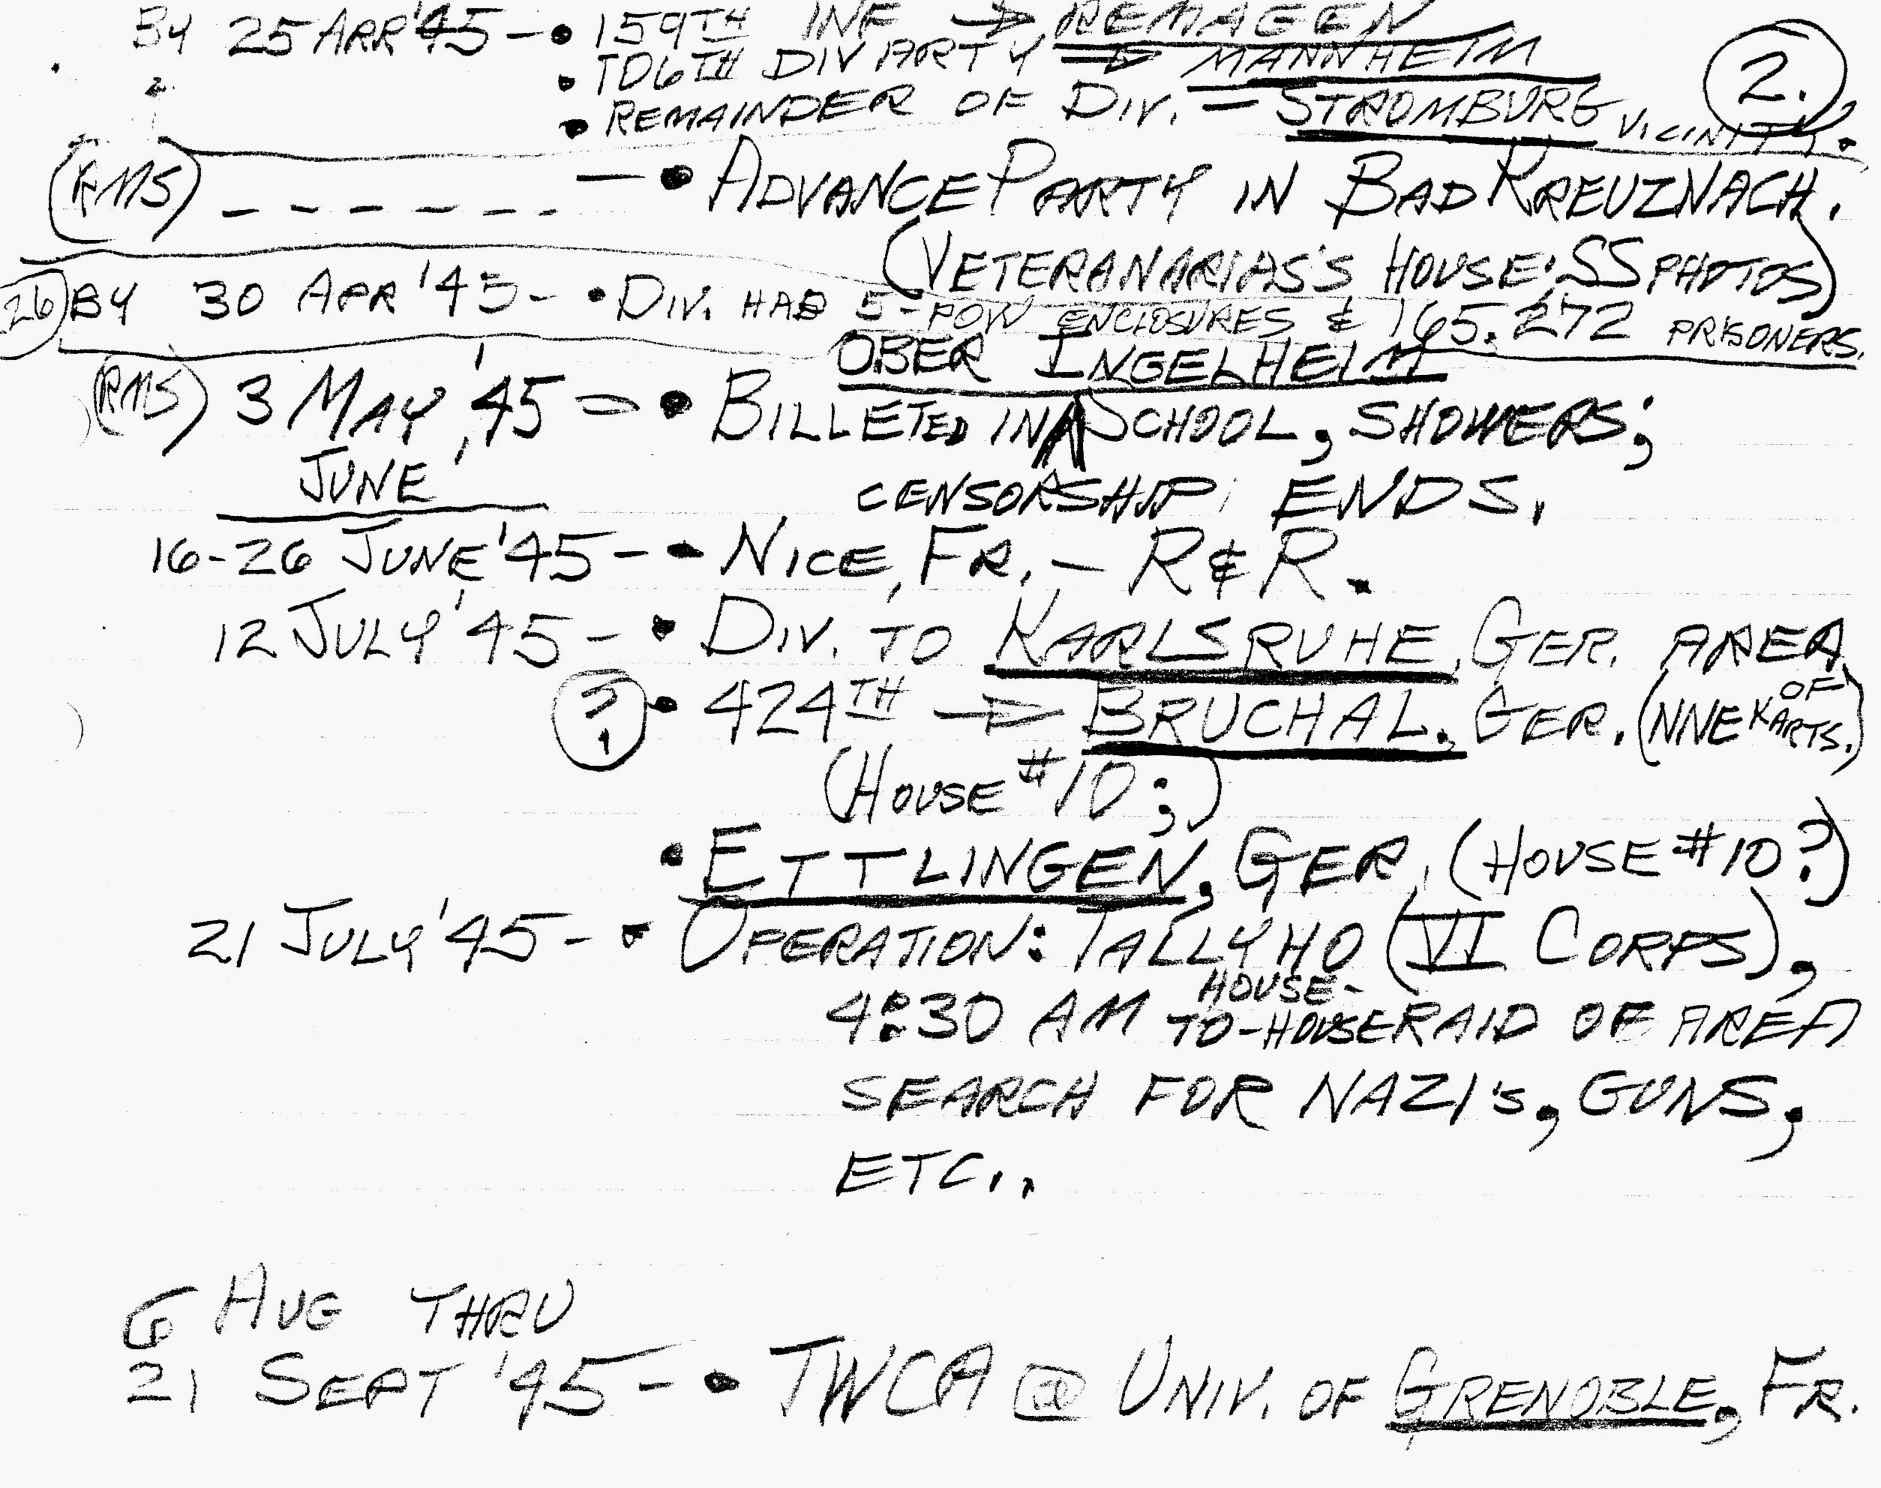 BY 25 APR '45 – • 159TH INF → REMAGEN
• 106TH DIV PARTY ⇒ MANNHEIM
• REMAINDER OF DIV. – STROMBURG VICINITY.
2.
(RMS) – – – – – – – • ADVANCE PARTY IN BAD KREUZNACH.
(VETERANARIAS'S HOUSE: SS PHOTOS)
(26) BY 30 APR '45 – • DIV. HAD 5-POW ENCLOSURES & 165,272 PRISONERS.
OBER INGELHEIM
(RMS) 3 MAY, '45 ⇒ • BILLETED IN ∧ SCHOOL, SHOWERS;
JUNE
CENSORSHIP ENDS.
16-26 JUNE '45 – • NICE, FR. – R & R.
12 JULY '45 – • DIV. TO KARLSRUHE, GER. AREA
(?) • 424TH → BRUCHAL, GER. (NNE OF KARLS.)
(HOUSE #10;)
• ETTLINGEN, GER. (HOUSE #10?)
21 JULY '45 – • OPERATION: TALLYHO (VI CORPS),
4:30 AM HOUSE-TO-HOUSE RAID OF AREA
SEARCH FOR NAZI's, GUNS,
ETC..
6 AUG THRU
21 SEPT '45 – • TWCA @ UNIV. OF GRENOBLE, FR.